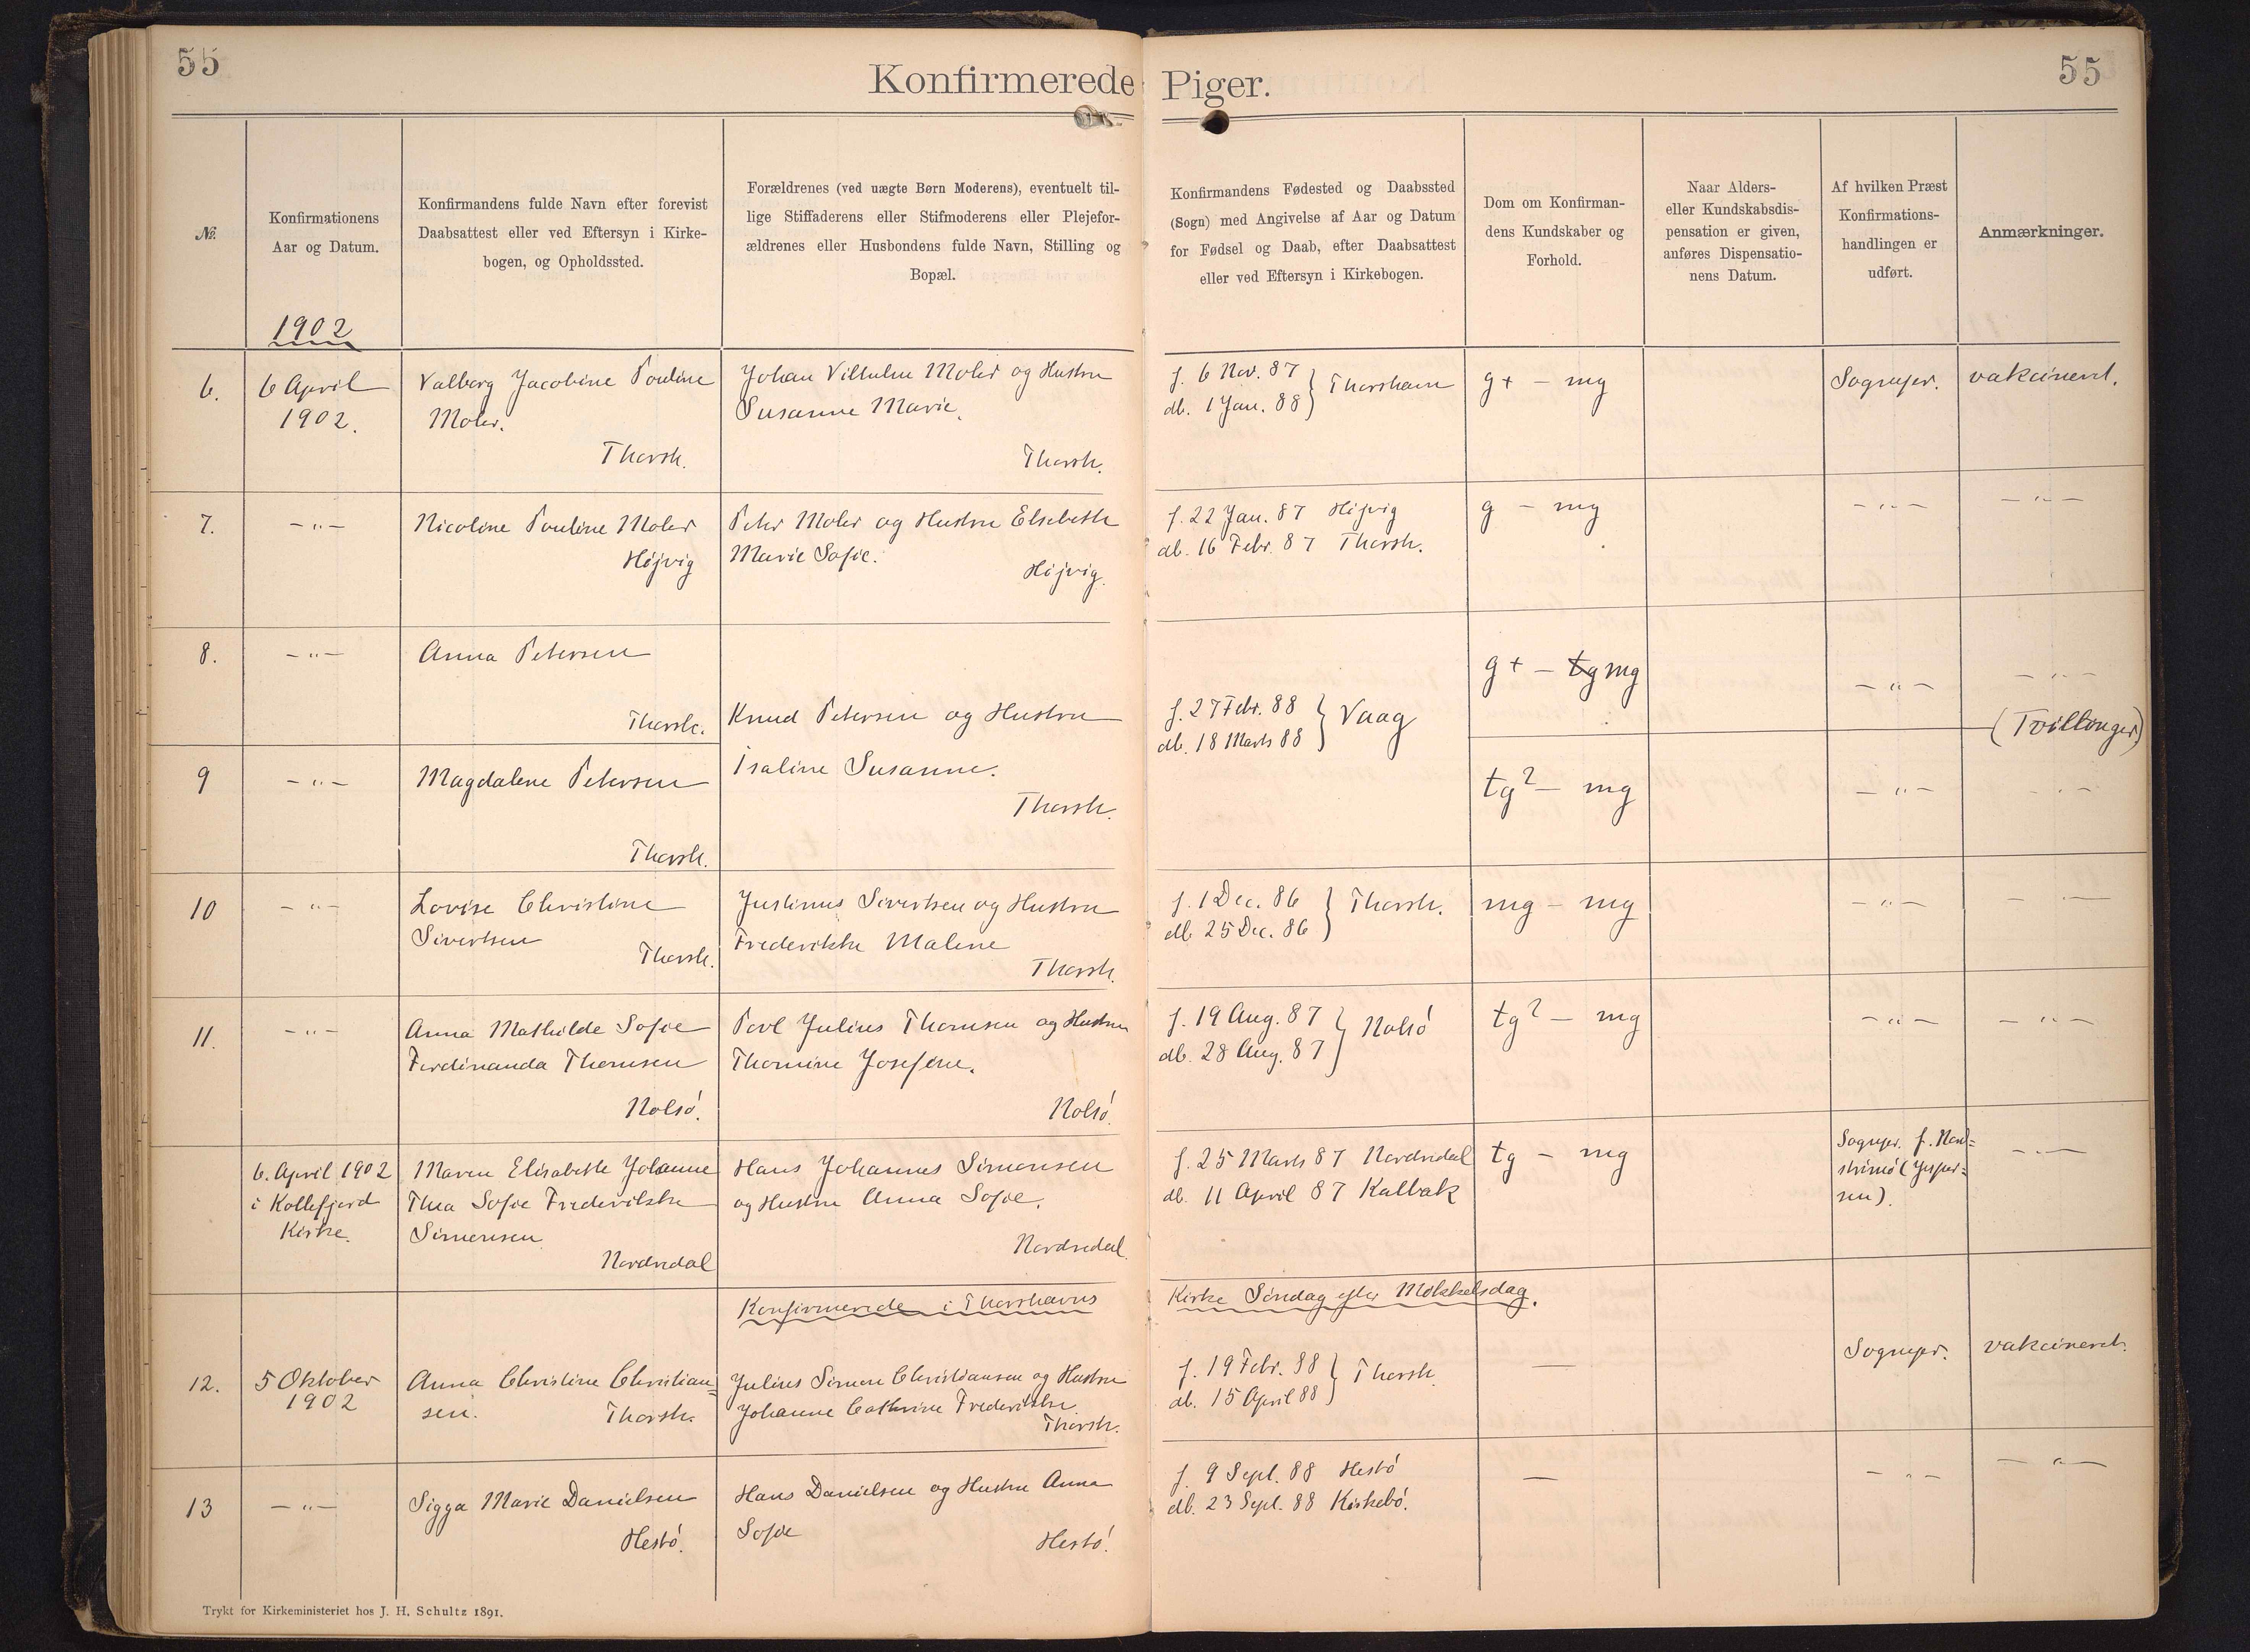 55
55
Konfirmerede Piger.
№.
Konfirmationens
Aar og Datum.
Konfirmandens fulde Navn efter forevist
Daabsattest eller ved Eftersyn i Kirke-
bogen, og Opholdssted.
Forældrenes (ved uægte Børn Moderens), eventuelt til-
lige Stiffaderens eller Stifmoderens eller Plejefor-
ældrenes eller Husbondens fulde Navn, Stilling og
Bopæl.
Konfirmandens Fødested og Daabssted
(Sogn) med Angivelse af Aar og Datum
for Fødsel og Daab, efter Daabsattest
eller ved Eftersyn i Kirkebogen.
Dom om Konfirman-
dens Kundskaber og
Forhold.
Naar Alders-
eller Kundskabsdis-
pensation er given,
anføres Dispensatio-
nens Datum.
Af hvilken Præst
Konfirmations-
handlingen er
udført.
Anmærkninger.
1902
6.
6 April
1902.
Valborg Jacobine Pouline
Mohr.
Thorsh.
Johan Vilhelm Mohr og Hustru
Susanne Marie.
Thorsh.
f. 6 Nov. 87
db. 1 Jan. 88
Thorshavn
g+ – mg
Sognepr.
vakcineret.
7.
– " –
Nicoline Pouline Mohr
Højvig
Peter Mohr og Hustru Elsebeth
Marie Sofie.
Højvig.
f. 22 Jan. 87 Højvig
db. 16 Febr. 87 Thorsh.
g – mg
– " –
– " –
8.
– " –
Anna Petersen
Thorsh.
Knud Petersen og Hustru
Isaline Susanne.
Thorsh.
f. 27 Febr. 88
db. 18 Marts 88
Vaag
g+ – tg mg
– " –
– " –
(Tvillinger)
9
– " –
Magdalene Petersen
Thorsh.
tg? – mg
– " –
– " –
10
– " –
Lovise Christine
Sivertsen
Thorsh.
Justinus Sivertsen og Hustru
Frederikke Malene
Thorsh.
f. 1 Dec. 86
db 25 Dec. 86
Thorsh.
mg – mg
– " –
– " –
11.
– " –
Anna Mathilde Sofie
Ferdinanda Thomsen
Nolsö.
Povl Julius Thomsen og Hustru
Thomine Josefine.
Nolsö.
f. 19 Aug. 87
db. 28 Aug. 87
Nolsö
tg? – mg
– " –
– " –
6. April 1902
i Kollefjord
Kirke.
Maren Elisabeth Johanne
Thea Sofie Frederikke
Simonsen
Nordredal
Hans Johannes Simonsen
og Hustru Anna Sofie.
Nordredal.
f. 25 Marts 87 Nordredal
db. 11 April 87 Kalbak
tg – mg
Sognepr. f. Nord=
strömö (Jesper=
sen).
– " –
Konfirmerede i Thorshavns Kirke Söndag efter Mikkelsdag.
12.
5 Oktober
1902
Anna Christine Christian=
sen.
Thorsh.
Julius Simon Christiansen og Hustru
Johanne Cathrine Frederikke.
Thorsh.
f. 19 Febr. 88
db. 15 April 88
Thorsh.
—
Sognepr.
vakcineret.
13
– " –
Sigga Marie Danielsen
Hestö.
Hans Danielsen og Hustru Anna
Sofie
Hestö.
f. 9 Sept. 88 Hestö
db. 23 Sept. 88 Kirkebö.
—
– " –
– " –
Trykt for Kirkeministeriet hos J. H. Schultz 1891.